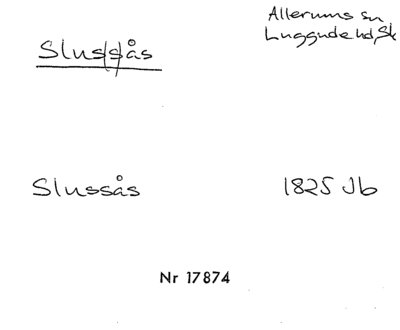 Slussås
Allerums sn
Luggude hd, Sk
Slussås
1825 Jb
Nr 17874